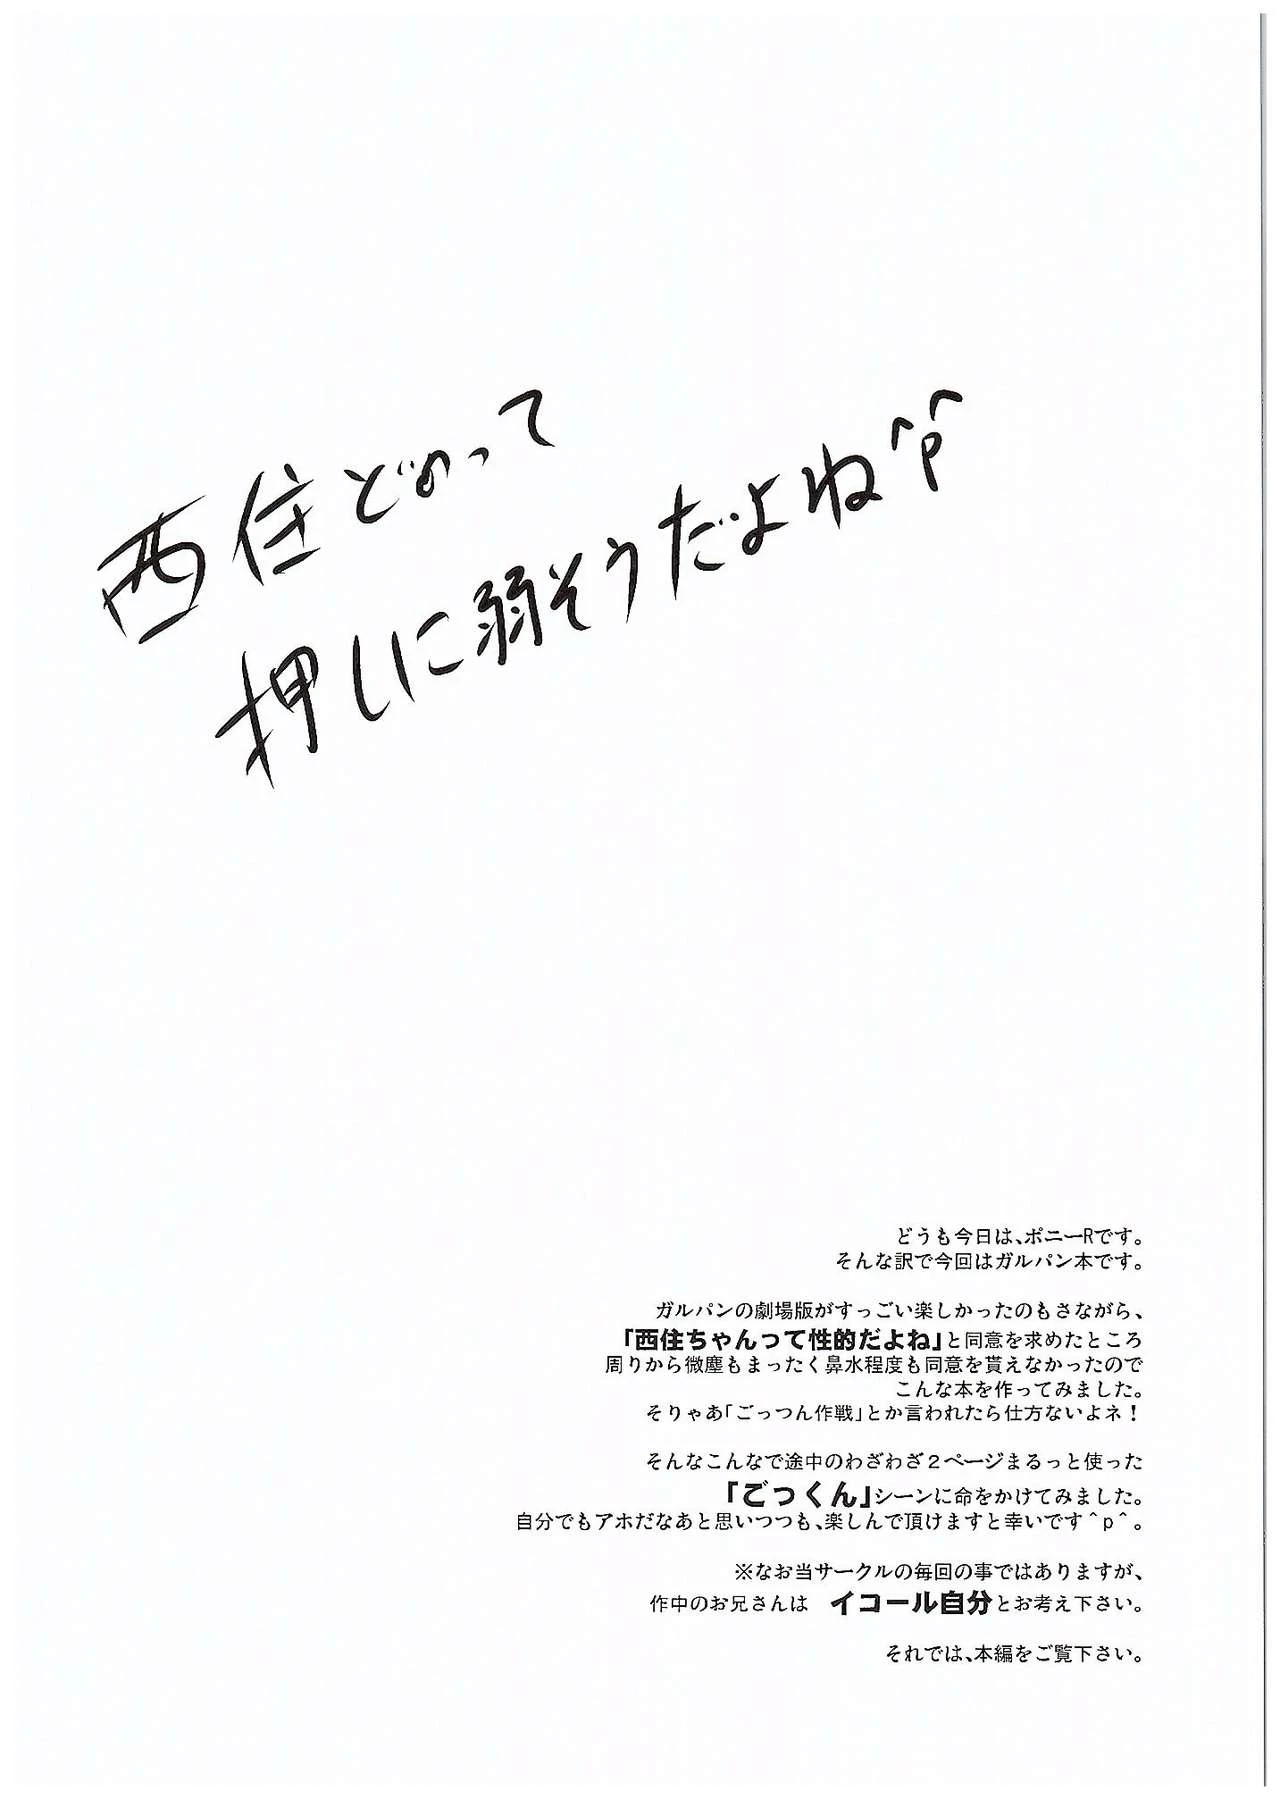 西住どのって
押しに弱そうだよね^p^
どうも今日は、ポニーRです。
そんな訳で今回はガルパン本です。
ガルパンの劇場版がすっごい楽しかったのもさながら、
「西住ちゃんって性的だよね」と同意を求めたところ
周りから微塵もまったく鼻水程度も同意を貰えなかったので
こんな本を作ってみました。
そりゃあ「ごっつん作戦」とか言われたら仕方ないよネ！
そんなこんなで途中のわざわざ２ページまるっと使った
「ごっくん」シーンに命をかけてみました。
自分でもアホだなあと思いつつも、楽しんで頂けますと幸いです＾p＾。
※なお当サークルの毎回の事ではありますが、
作中のお兄さんは　イコール自分とお考え下さい。
それでは、本編をご覧下さい。